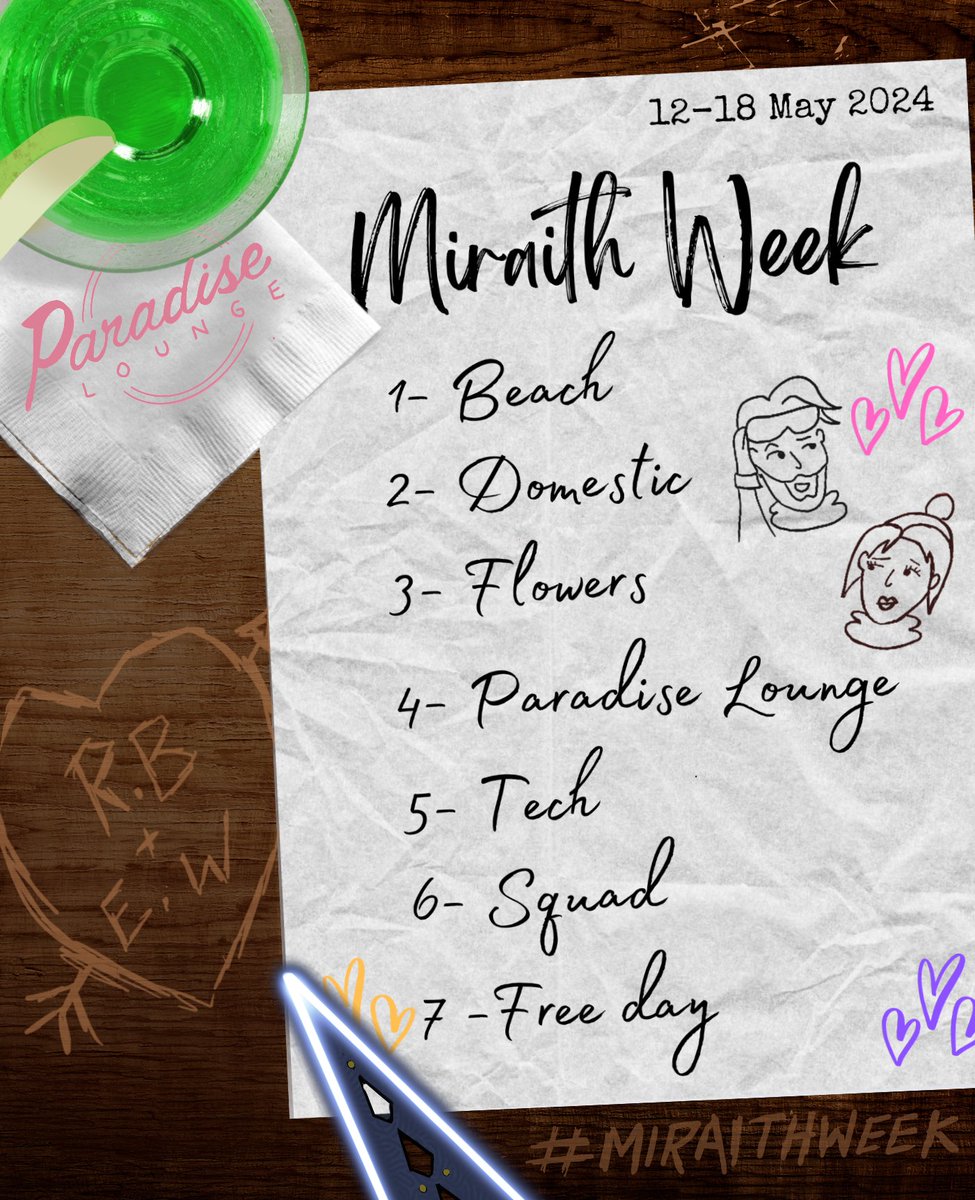 12-18 May 2024
Miraith Week
Paradise
LOUNGE
1- Beach
2- Domestic
3- Flowers
4- Paradise Lounge
5- Tech
6- Squad
7 -Free day
R.B
+
E.W
#MIRAITHWEEK